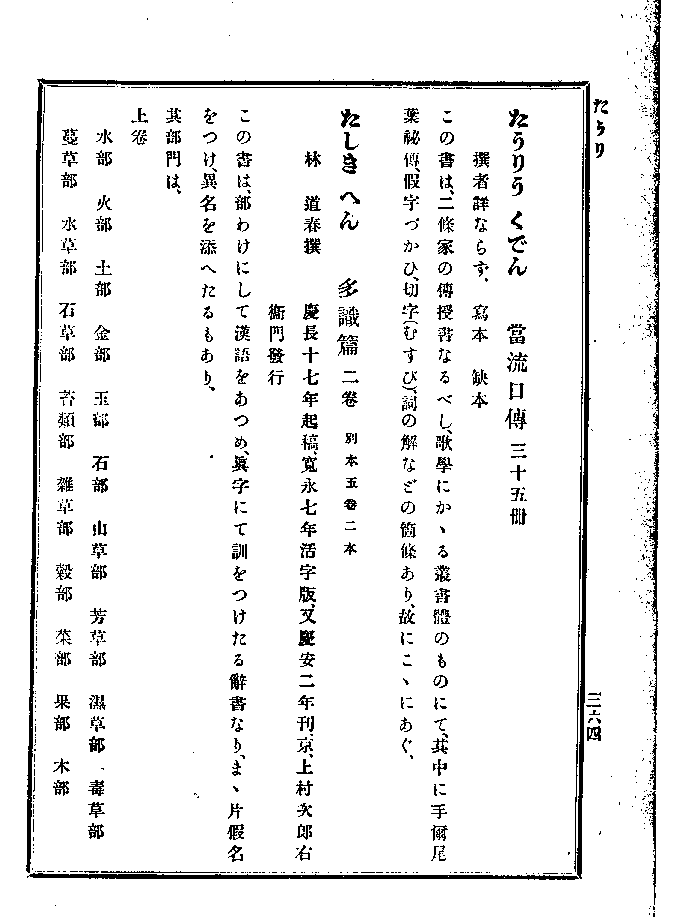 たうり
三六四
たうりう くでん 當流口傳 三十五冊
撰者詳ならず、 寫本 缺本
この書は、二條家の傳授書なるべし、歌學にかゝる叢書體のものにて、其中に手爾尾
葉祕傳、假字づかひ、切字(むすび)、詞の解などの箇條あり、故にこゝにあぐ、
たしき へん 多識篇 二卷 別本五卷二本
林 道春撰 慶長十七年起稿、寬永七年活字版、又慶安二年刊、京、上村次郎右
衞門發行
この書は、部わけにして漢語をあつめ、眞字にて訓をつけたる辭書なり、まゝ片假名
をつけ、異名を添へたるもあり、
其部門は、
上卷
水部 火部 土部 金部 玉部 石部 山草部 芳草部 濕草部 毒草部
蔓草部 水草部 石草部 苔類部 雜草部 穀部 菜部 果部 木部